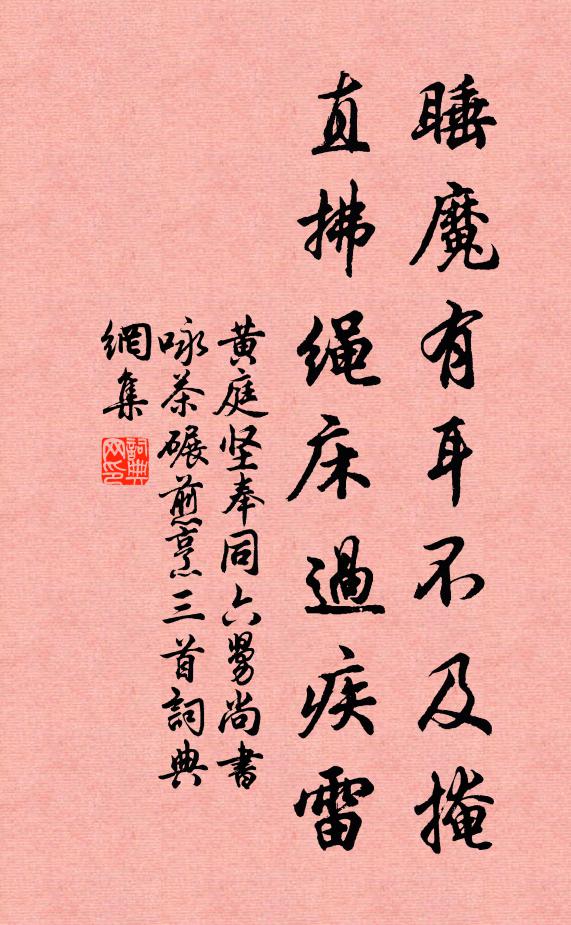 睡魔有耳不及掩
直拂绳床過疾雷
黄庭坚奉同六舅尚書
咏茶碾煎烹三首詞典
網集
詞典
网印